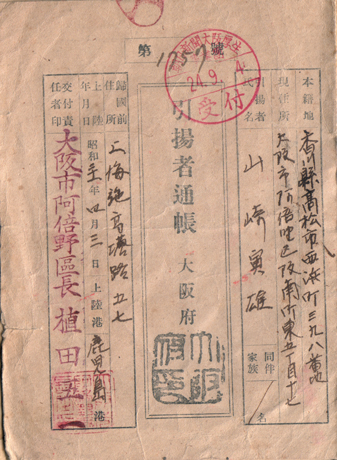 第1757號
24.9.4
受付
本籍地 香川縣高松市西浜町三九八番地
現住所 大阪市阿倍野区阪南町東五丁目十七
引揚者氏名 山崎寅雄
同伴家族
引揚者通帳 大阪府
歸國前住所 上海
上陸年月日 昭和 年四月三日 上陸港 鹿児島港
交付責任者印 大阪市阿倍野區長 植田